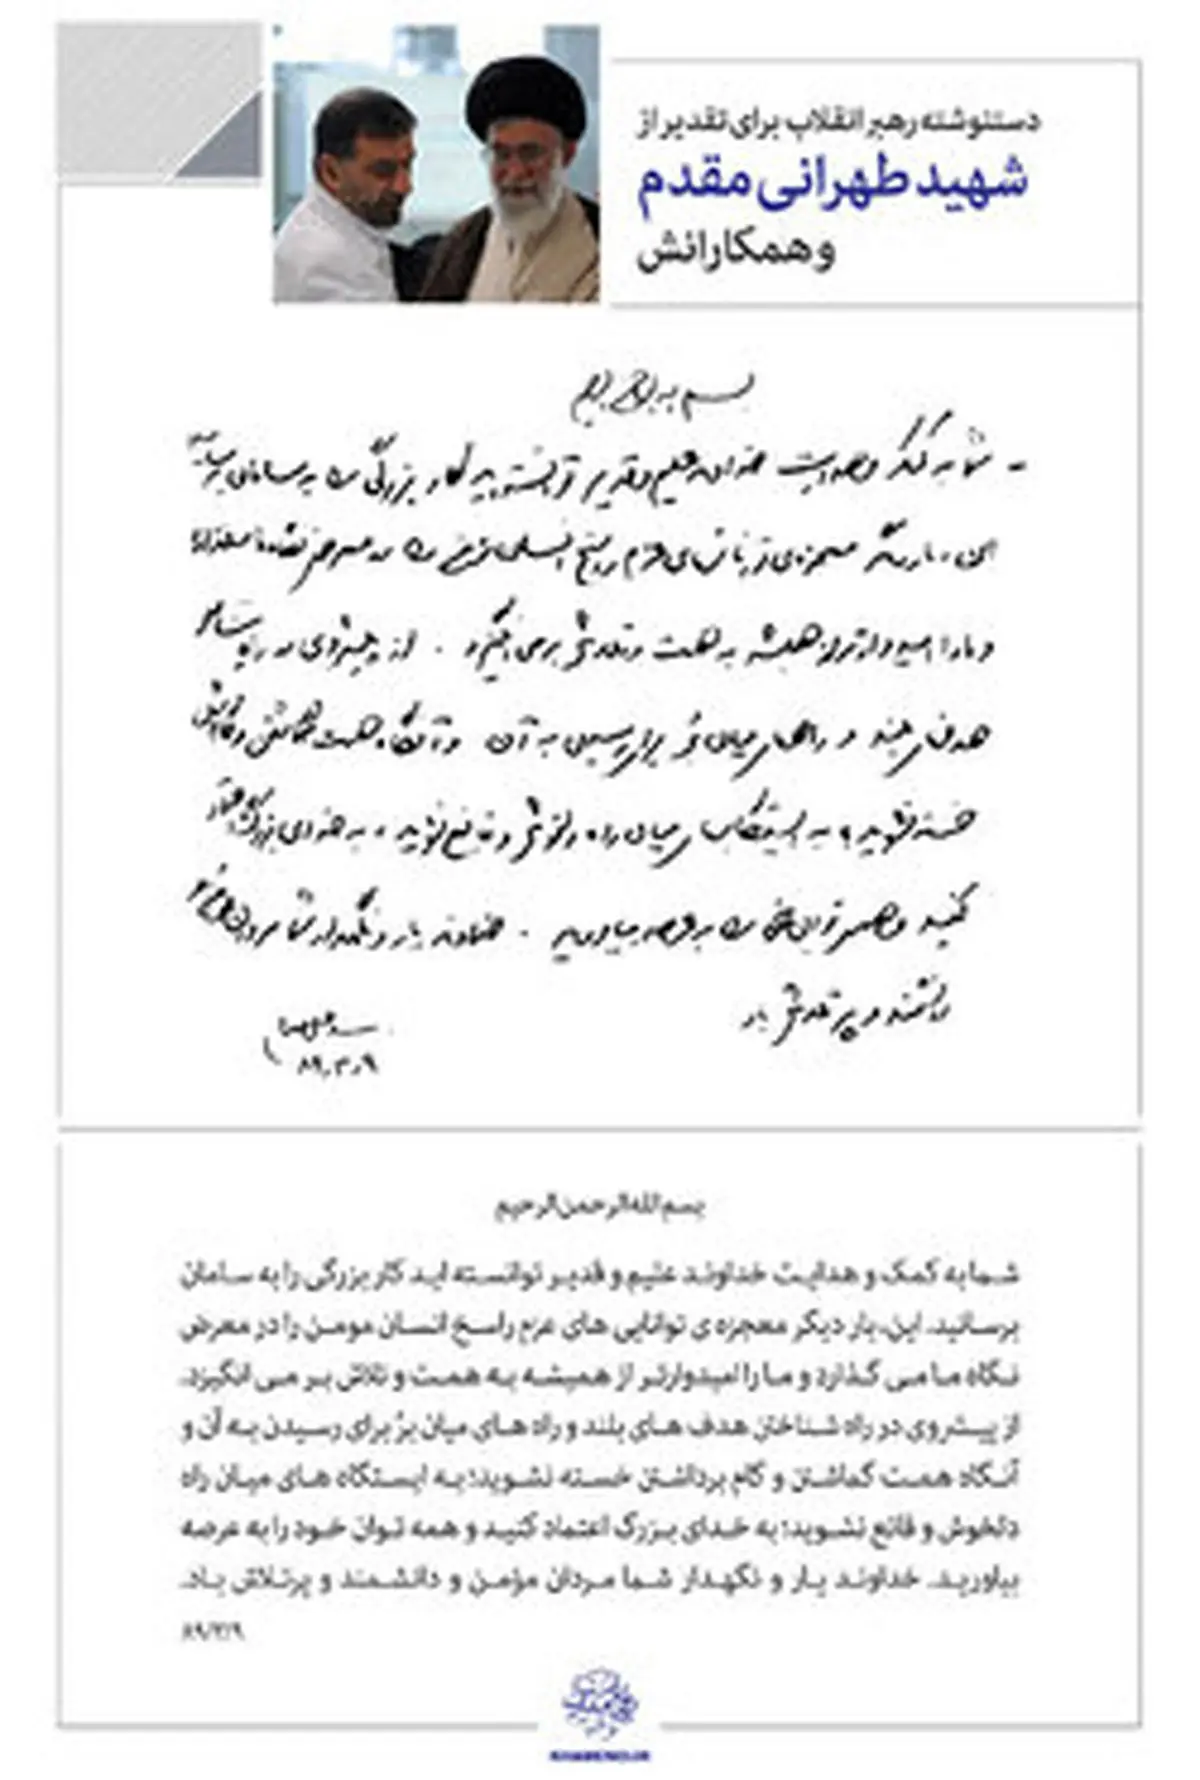 دستنوشته رهبر انقلاب برای تقدیر از
شهید طهرانی مقدم
و همکارانش
بسم الله الرحمن الرحیم
- شما به کمک و هدایت خداوند علیم و قدیر توانسته اید کار بزرگی را به سامان برسانید
این، بار دیگر معجزه‌ی توانایی های عزم راسخ انسان مومن را در معرض نگاه ما میگذارد
و ما را امیدوارتر از همیشه به همت و تلاش برمی انگیزد. از پیشروی در راه شناختن
هدفهای بلند و راههای میان بُر برای رسیدن به آن و آنگاه همت گماشتن و گام برداشتن
خسته نشوید؛ به ایستگاههای میان راه دلخوش و قانع نشوید؛ به خدای بزرگ اعتماد
کنید و همه توان خود را به عرصه بیاورید. خداوند یار و نگهدار شما مردان مؤمن و
دانشمند و پرتلاش باد
۸۹٫۳٫۹
بسم الله الرحمن الرحیم
شما به کمک و هدایت خداوند علیم و قدیر توانسته اید کار بزرگی را به سامان
برسانید. این، بار دیگر معجزه ی توانایی های عزم راسخ انسان مومن را در معرض
نگاه ما می گذارد و ما را امیدوارتر از همیشه به همت و تلاش بر می انگیزد.
از پیشروی در راه شناختن هدف های بلند و راه های میان بُر برای رسیدن به آن و
آنگاه همت گماشتن و گام برداشتن خسته نشوید؛ به ایستگاه های میان راه
دلخوش و قانع نشوید؛ به خدای بزرگ اعتماد کنید و همه توان خود را به عرصه
بیاورید. خداوند یار و نگهدار شما مردان مؤمن و دانشمند و پرتلاش باد.
۸۹/۳/۹
KHAMENEI.IR